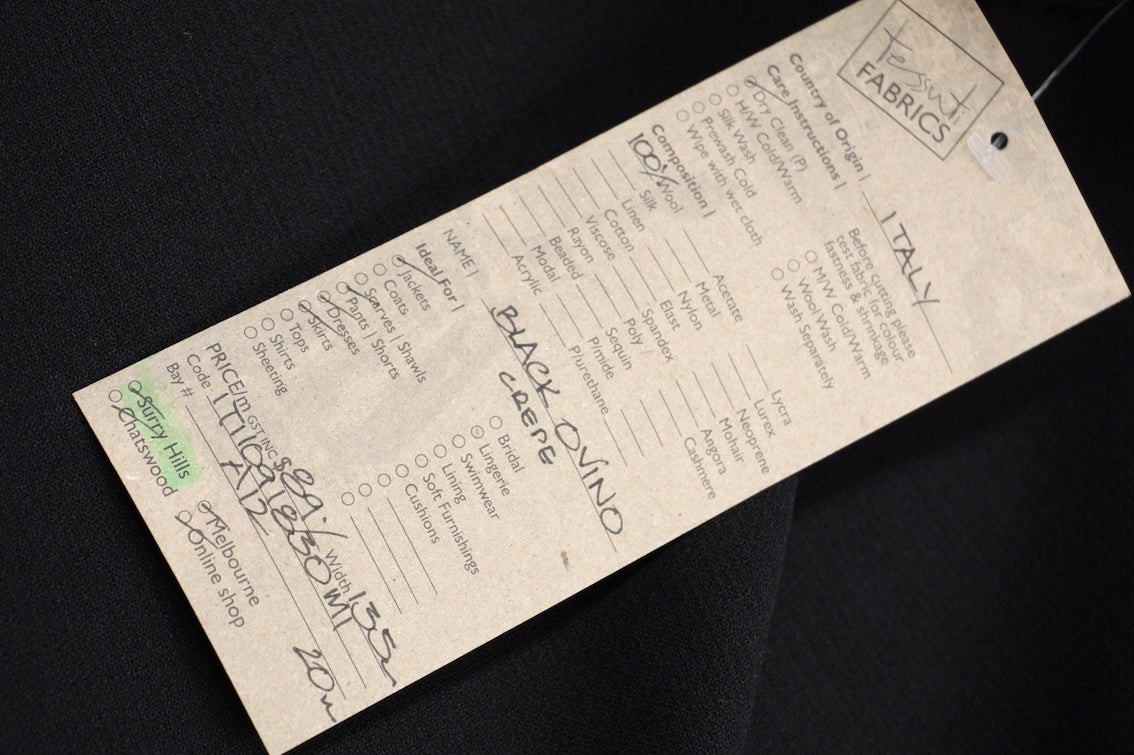 tessuti
FABRICS
Country of Origin | ITALY
Care Instructions |
Dry Clean (P)
H/W Cold/Warm
Silk Wash
Prewash Cold
Wipe with wet cloth
Before cutting please
test fabric for colour
fastness & shrinkage
M/W Cold/Warm
Wool Wash
Wash Separately
Composition |
100% Wool
Silk
Linen
Cotton
Viscose
Rayon
Beaded
Modal
Acrylic
Acetate
Metal
Nylon
Elast
Spandex
Poly /
Sequin
P/mide
P/urethane
Lycra
Lurex
Neoprene
Mohair
Angora
Cashmere
NAME | BLACK OVINO
CREPE
Ideal For |
Jackets
Coats
Scarves | Shawls
Pants | Shorts
Dresses
Skirts
Tops
Shirts
Sheeting
Bridal
Lingerie
Swimwear
Lining
Soft Furnishings
Cushions
PRICE/m GST INC $89.- Width 135
Code | T11091830W1
Bay # A12 20m
Surry Hills
Chatswood
Melbourne
Online shop